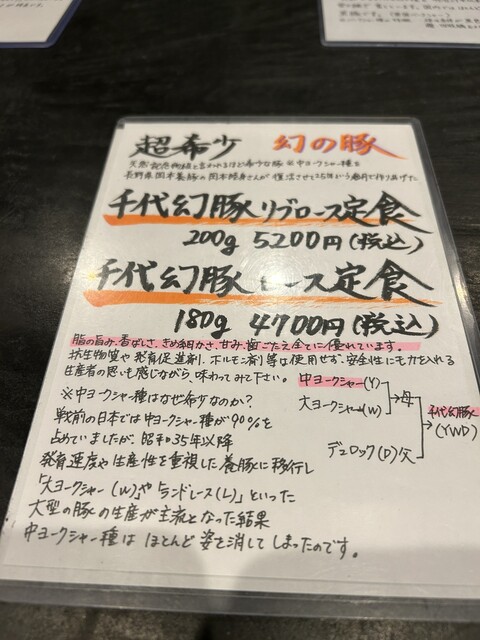 超希少 幻の豚
天然記念物級と言われるほど希少な豚 ※中ヨークシャー種を
長野県岡本養豚の岡本陽身さんが復活させて25年という歳月で作りあげた
千代幻豚リブロース定食
200g 5200円(税込)
千代幻豚 ロース定食
180g 4700円(税込)
脂の旨み、香ばしさ、きめ細かさ、甘み、歯ごたえ全てに優れています。
抗生物質や発育促進剤、ホルモン剤等は使用せず、安全性にも力を入れる
生産者の思いも感じながら、味わってみて下さい。
中ヨークシャー(Y)
大ヨークシャー(W)
母
デュロック(D)父
千代幻豚
(YWD)
※中ヨークシャー種はなぜ希少なのか?
戦前の日本では中ヨークシャー種が90%を
占めていましたが、昭和35年以降
発育速度や生産性を重視した養豚に移行し
「大ヨークシャー(W)」や「ランドレース(L)」といった
大型の豚の生産が主流となった結果
中ヨークシャー種はほとんど姿を消してしまったのです。